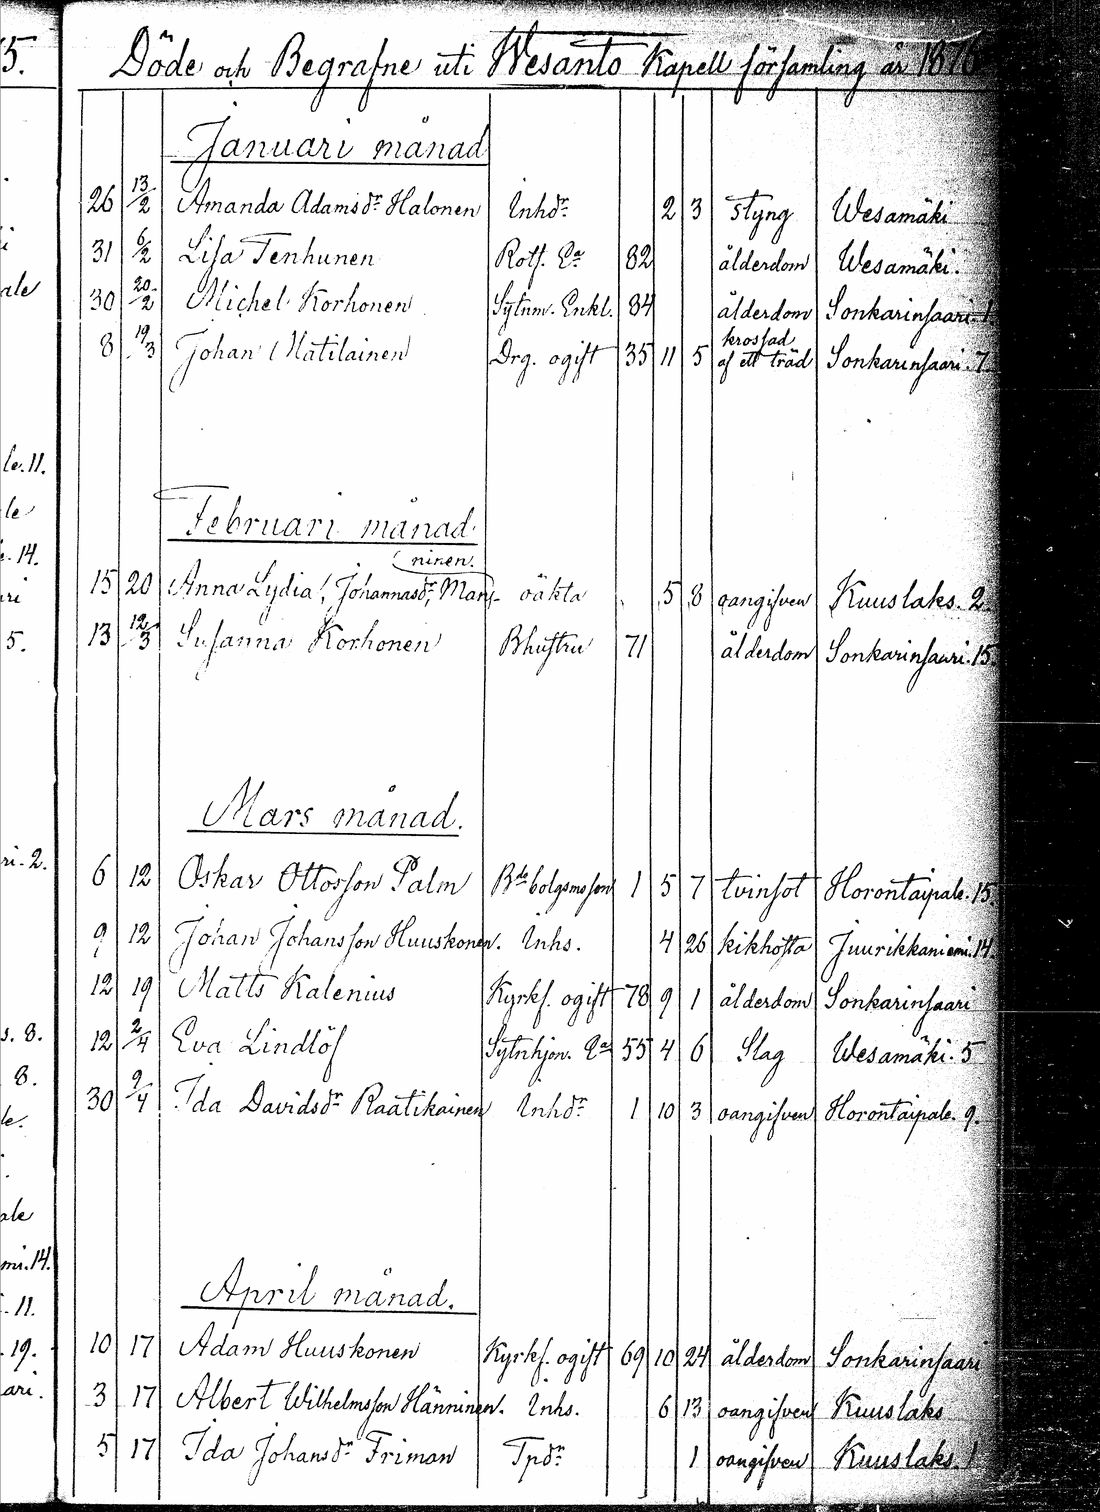 5.
Döde och Begrafne uti Wesanto Kapell församling år 1876
Januari månad
26 13/2 Amanda Adamsdr Halonen Inhdr 2 3 styng Wesamäki
31 6/2 Lisa Tenhunen Rotf. Ea 82 ålderdom Wesamäki.
30 20/2 Michel Korhonen Sytnm. Enkl. 84 ålderdom Sonkarinsaari. 1
8 19/3 Johan Matilainen Drg. ogift 35 11 5 krossad af ett träd Sonkarinsaari. 7.
le. 11.
le
14.
Februari månad.
15 20 Anna Lydia, Johannasdr, Manninen. oäkta 5 8 oangifven Kuuslaks. 2
5.
13 12/3 Susanna Korhonen Bhustru 71 ålderdom Sonkarinsaari. 15.
Mars månad.
ri. 2.
6 12 Oskar Ottosson Palm Bdebolgsmsson 1 5 7 tvinsot Horontaipale. 15.
9 12 Johan Johansson Huuskonen. Inhs. 4 26 kikhosta Juurikkaniemi. 14.
12 19 Matts Kalenius Kyrkf. ogift 78 9 1 ålderdom Sonkarinsaari
s. 8.
12 2/4 Eva Lindlöf Sytnhjon. Ea 55 4 6 Slag Wesamäki. 5
8.
30 9/4 Ida Davidsdr Raatikainen Inhdr 1 10 3 oangifven Horontaipale. 9.
le.
ale
mi. 14.
April månad.
11.
19.
10 17 Adam Huuskonen Kyrkf. ogift 69 10 24 ålderdom Sonkarinsaari
ari.
3 17 Albert Wilhelmsson Hänninen. Inhs. 6 13 oangifven Kuuslaks
5 17 Ida Johansdr Friman Tpdr 1 oangifven Kuuslaks. 1